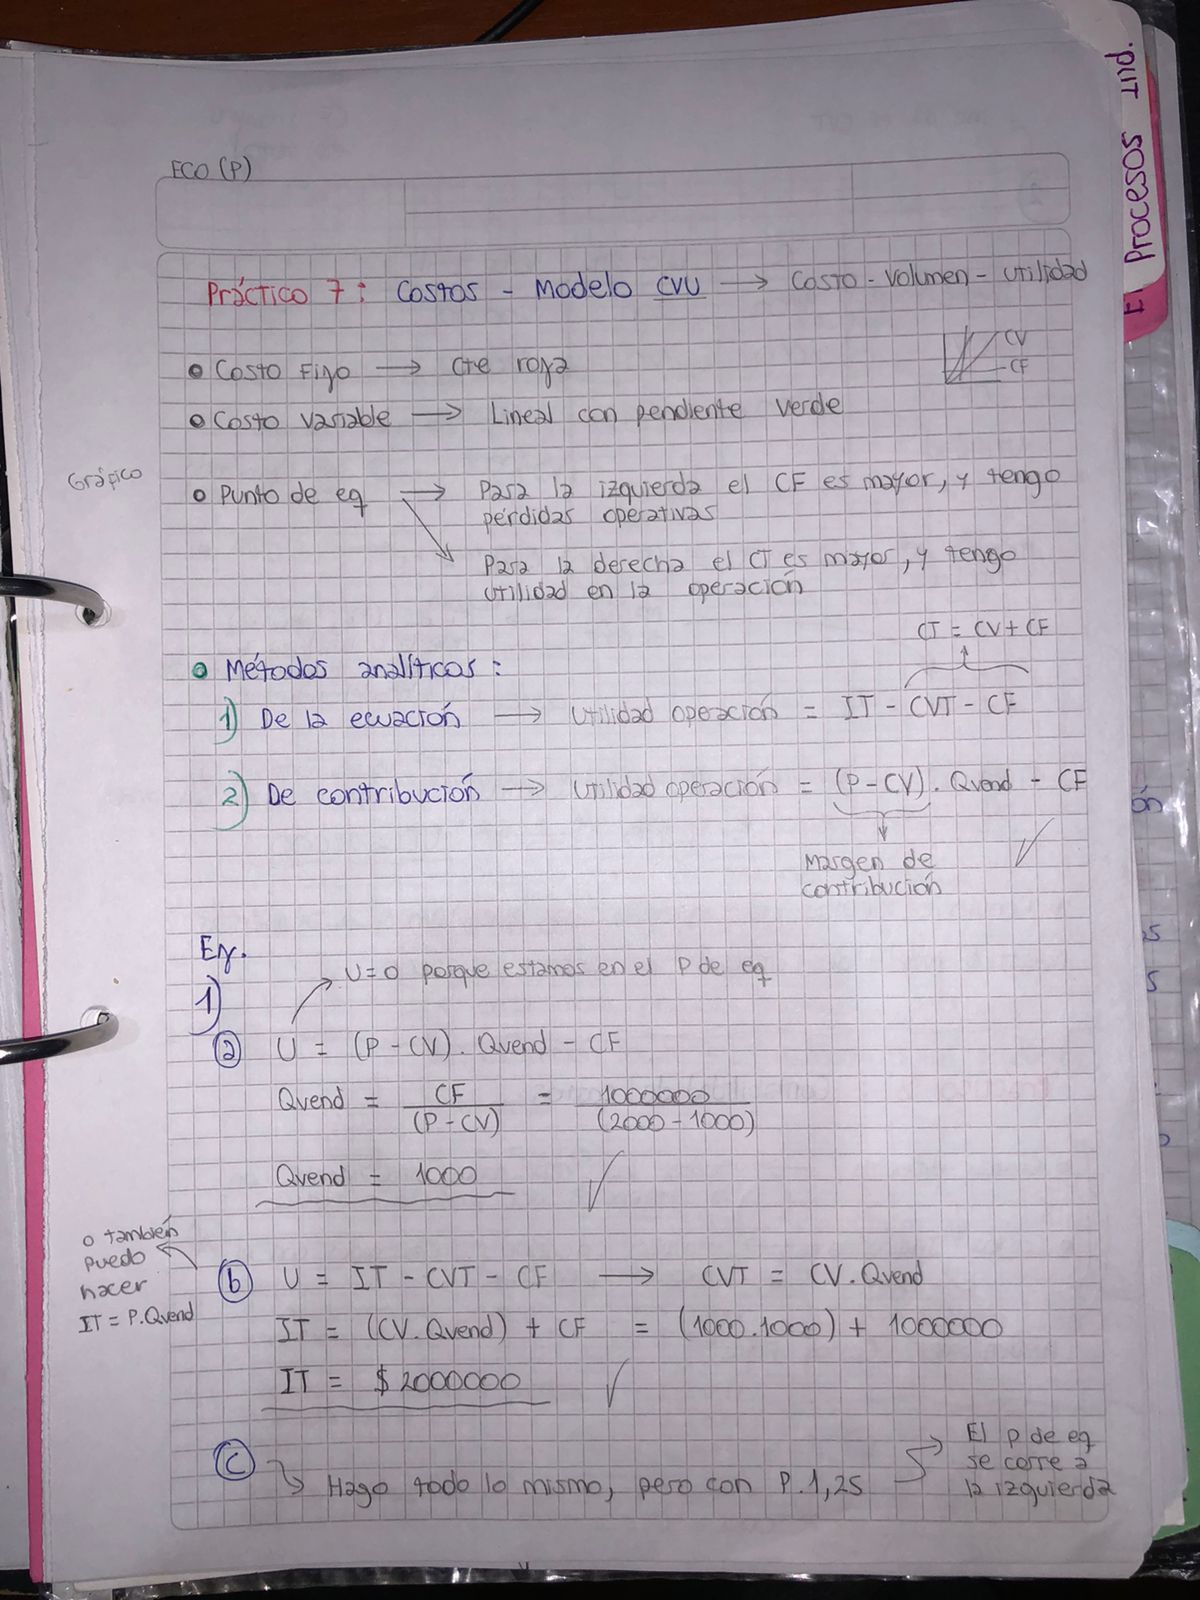 ET Procesos Ind.
ECO (P)
Práctico 7: Costos - Modelo CVU → Costo - Volumen - Utilidad
• Costo Fijo → Cte roja
CV
CF
• Costo variable → Lineal con pendiente verde
Gráfico
• Punto de eq → Para la izquierda el CF es mayor, y tengo
pérdidas operativas
Para la derecha el CT es mayor, y tengo
utilidad en la operación
CT = CV + CF
• Métodos analíticos:
1) De la ecuación → Utilidad operación = IT - CVT - CF
2) De contribución → Utilidad operación = (P - CV) . Qvend - CF
Margen de
contribución
Ej.
U=0 porque estamos en el P de eq
1)
a U = (P - CV) . Qvend - CF
Qvend = CF / (P - CV) = 1000000 / (2000 - 1000)
Qvend = 1000
o también
puedo
hacer
IT = P.Qvend
b U = IT - CVT - CF → CVT = CV.Qvend
IT = (CV.Qvend) + CF = (1000.1000) + 1000000
IT = $2000000
c
Hago todo lo mismo, pero con P.1,25
El P de eq
se corre a
la izquierda